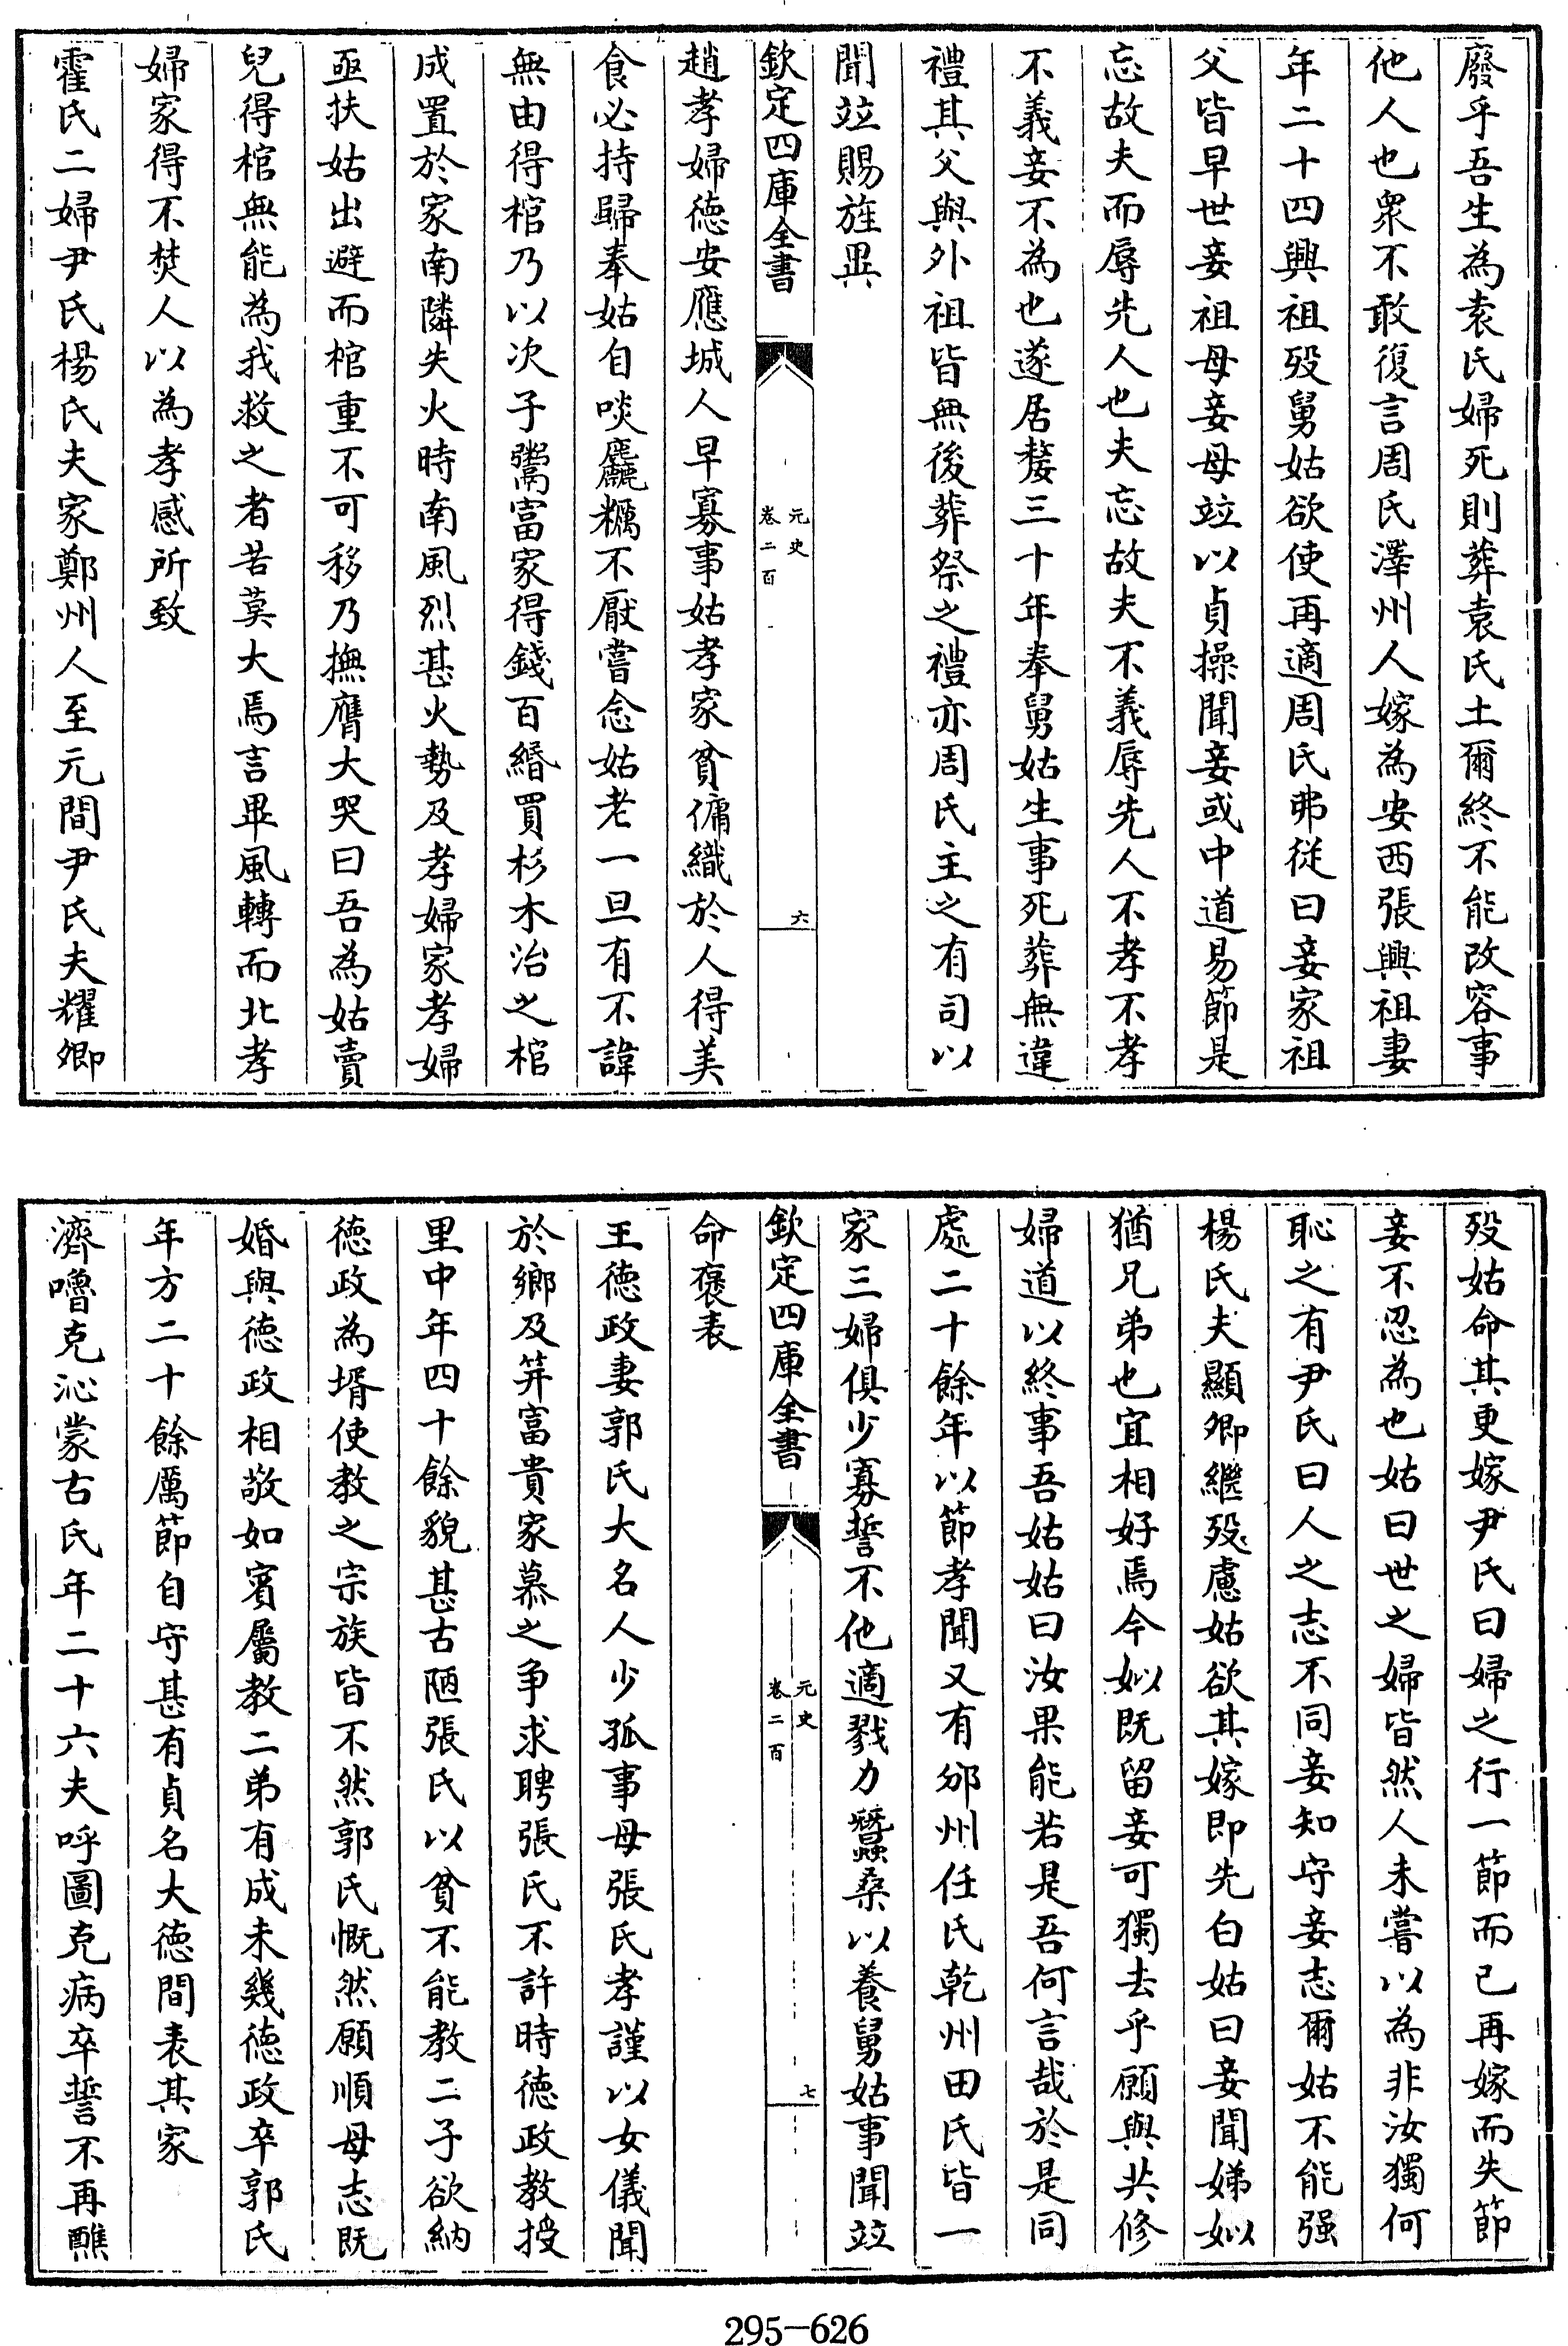 廢乎吾生為袁氏婦死則葬袁氏土爾終不能改容事
他人也衆不敢復言周氏澤州人嫁為安西張興祖妻
年二十四興祖歿舅姑欲使再適周氏弗從曰妾家祖
父皆早世妾祖母妾母竝以貞操聞妾或中道易節是
忘故夫而辱先人也夫忘故夫不義辱先人不孝不孝
不義妾不為也遂居嫠三十年奉舅姑生事死葬無違
禮其父與外祖皆無後葬祭之禮亦周氏主之有司以
聞竝賜旌異
欽定四庫全書
元史
卷二百
六
趙孝婦徳安應城人早寡事姑孝家貧傭織於人得美
食必持歸奉姑自啖麤糲不厭嘗念姑老一旦有不諱
無由得棺乃以次子鬻富家得錢百緡買杉木治之棺
成置於家南隣失火時南風烈甚火勢及孝婦家孝婦
亟扶姑出避而棺重不可移乃撫膺大哭曰吾為姑賣
兒得棺無能為我救之者苦莫大焉言畢風轉而北孝
婦家得不焚人以為孝感所致
霍氏二婦尹氏楊氏夫家鄭州人至元間尹氏夫耀卿
歿姑命其更嫁尹氏曰婦之行一節而已再嫁而失節
妾不忍為也姑曰世之婦皆然人未嘗以為非汝獨何
恥之有尹氏曰人之志不同妾知守妾志爾姑不能强
楊氏夫顯卿繼歿慮姑欲其嫁即先白姑曰妾聞娣姒
猶兄弟也宜相好焉今姒既留妾可獨去乎願與共修
婦道以終事吾姑姑曰汝果能若是吾何言哉於是同
處二十餘年以節孝聞又有邠州任氏乾州田氏皆一
家三婦俱少寡誓不他適戮力蠶桑以養舅姑事聞竝
欽定四庫全書
元史
卷二百
七
命褒表
王徳政妻郭氏大名人少孤事母張氏孝謹以女儀聞
於鄉及笄富貴家慕之争求聘張氏不許時徳政教授
里中年四十餘貌甚古陋張氏以貧不能教二子欲納
徳政為壻使教之宗族皆不然郭氏慨然願順母志既
婚與徳政相敬如賓屬教二弟有成未幾徳政卒郭氏
年方二十餘厲節自守甚有貞名大徳間表其家
濟嚕克沁蒙古氏年二十六夫呼圖克病卒誓不再醮
295-626